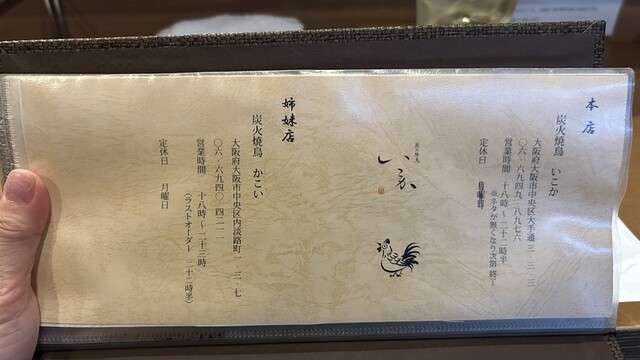 本店
炭火焼鳥 いこか
大阪府大阪市中央区大手通三-二-三
〇六-六九四九-八九七六
営業時間 十八時~二十二時半
※ネタが無くなり次第 終了
定休日
炭火焼鳥
いこか
姉妹店
炭火焼鳥 かこい
大阪府大阪市中央区内淡路町一-三-七
〇六-六九四〇-四二一一
営業時間 十八時~二十三時
(ラストオーダー 二十二時半)
定休日 月曜日